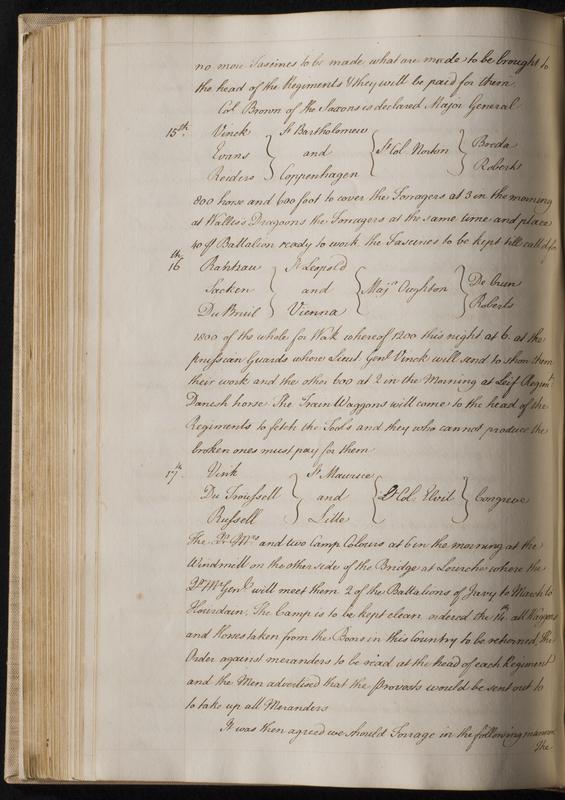 no more Fascines to be made what are made to be brought to
the head of the Regiments & they will be paid for them
Col. Brown of the Saxons is declared Major General
15th. Vinck St Bartholomew
Evans and Lt Col. Norton Breda
Reeders Coppenhagen Roberts
800 horse and 600 foot to cover the Forragers at 3 in the morning
at Wallis's Dragoons the Forragers at the same time and place
40 p Battalion ready to work the Fascines to be kept till call'd for
16th Rantzau St Leopold
Sacken and Majr Oughton De brun
Du Breuil Vienna Roberts
1800 of the whole for Work whereof 1200 this night at 6 at the
prussian Guards where Lieut Genl Vinck will send to show them
their work and the other 600 at 2 in the Morning at Leif Regimt
Danish horse The Train Waggons will come to the head of the
Regiments to fetch the Tools and they who cannot produce the
broken ones must pay for them
17th Vink St Maurice
Du Troussell and Lt Col. Elvil Congreve
Russell Lille
The Qr Mrs and two Camp Colours at 6 in the morning at the
Windmill on the other side of the Bridge at Lourche where the
Qr Mr Genl will meet them 2 of the Battalions of Javy to March to
Hourdain, The Camp is to be kept clean ordered the 14th all Waggons
and Horses taken from the Boors in this Country to be returned, the
Order against meranders to be read at the head of each Regiment
and the Men advertised that the Provosts would be sent out to
to take up all Meranders
It was then agreed we should Forrage in the following manner
the